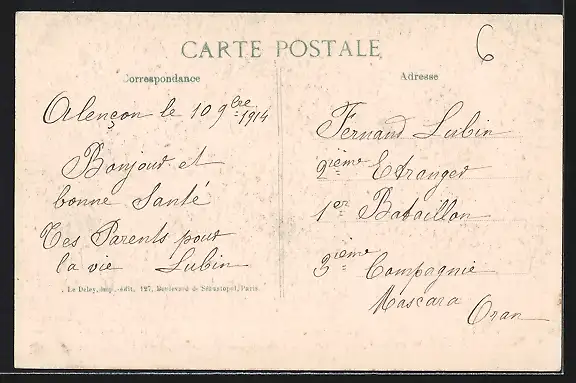 CARTE POSTALE
6
Correspondance
Alençon le 10 9bre 1914
Bonjour et
bonne Santé
Tes Parents pour
la vie Lubin
Le Deley, imp.-édit., 127, Boulevard de Sébastopol, Paris
Adresse
Fernand Lubin
2ième Etranger
1er Bataillon
3ième Compagnie
Mascara
Oran